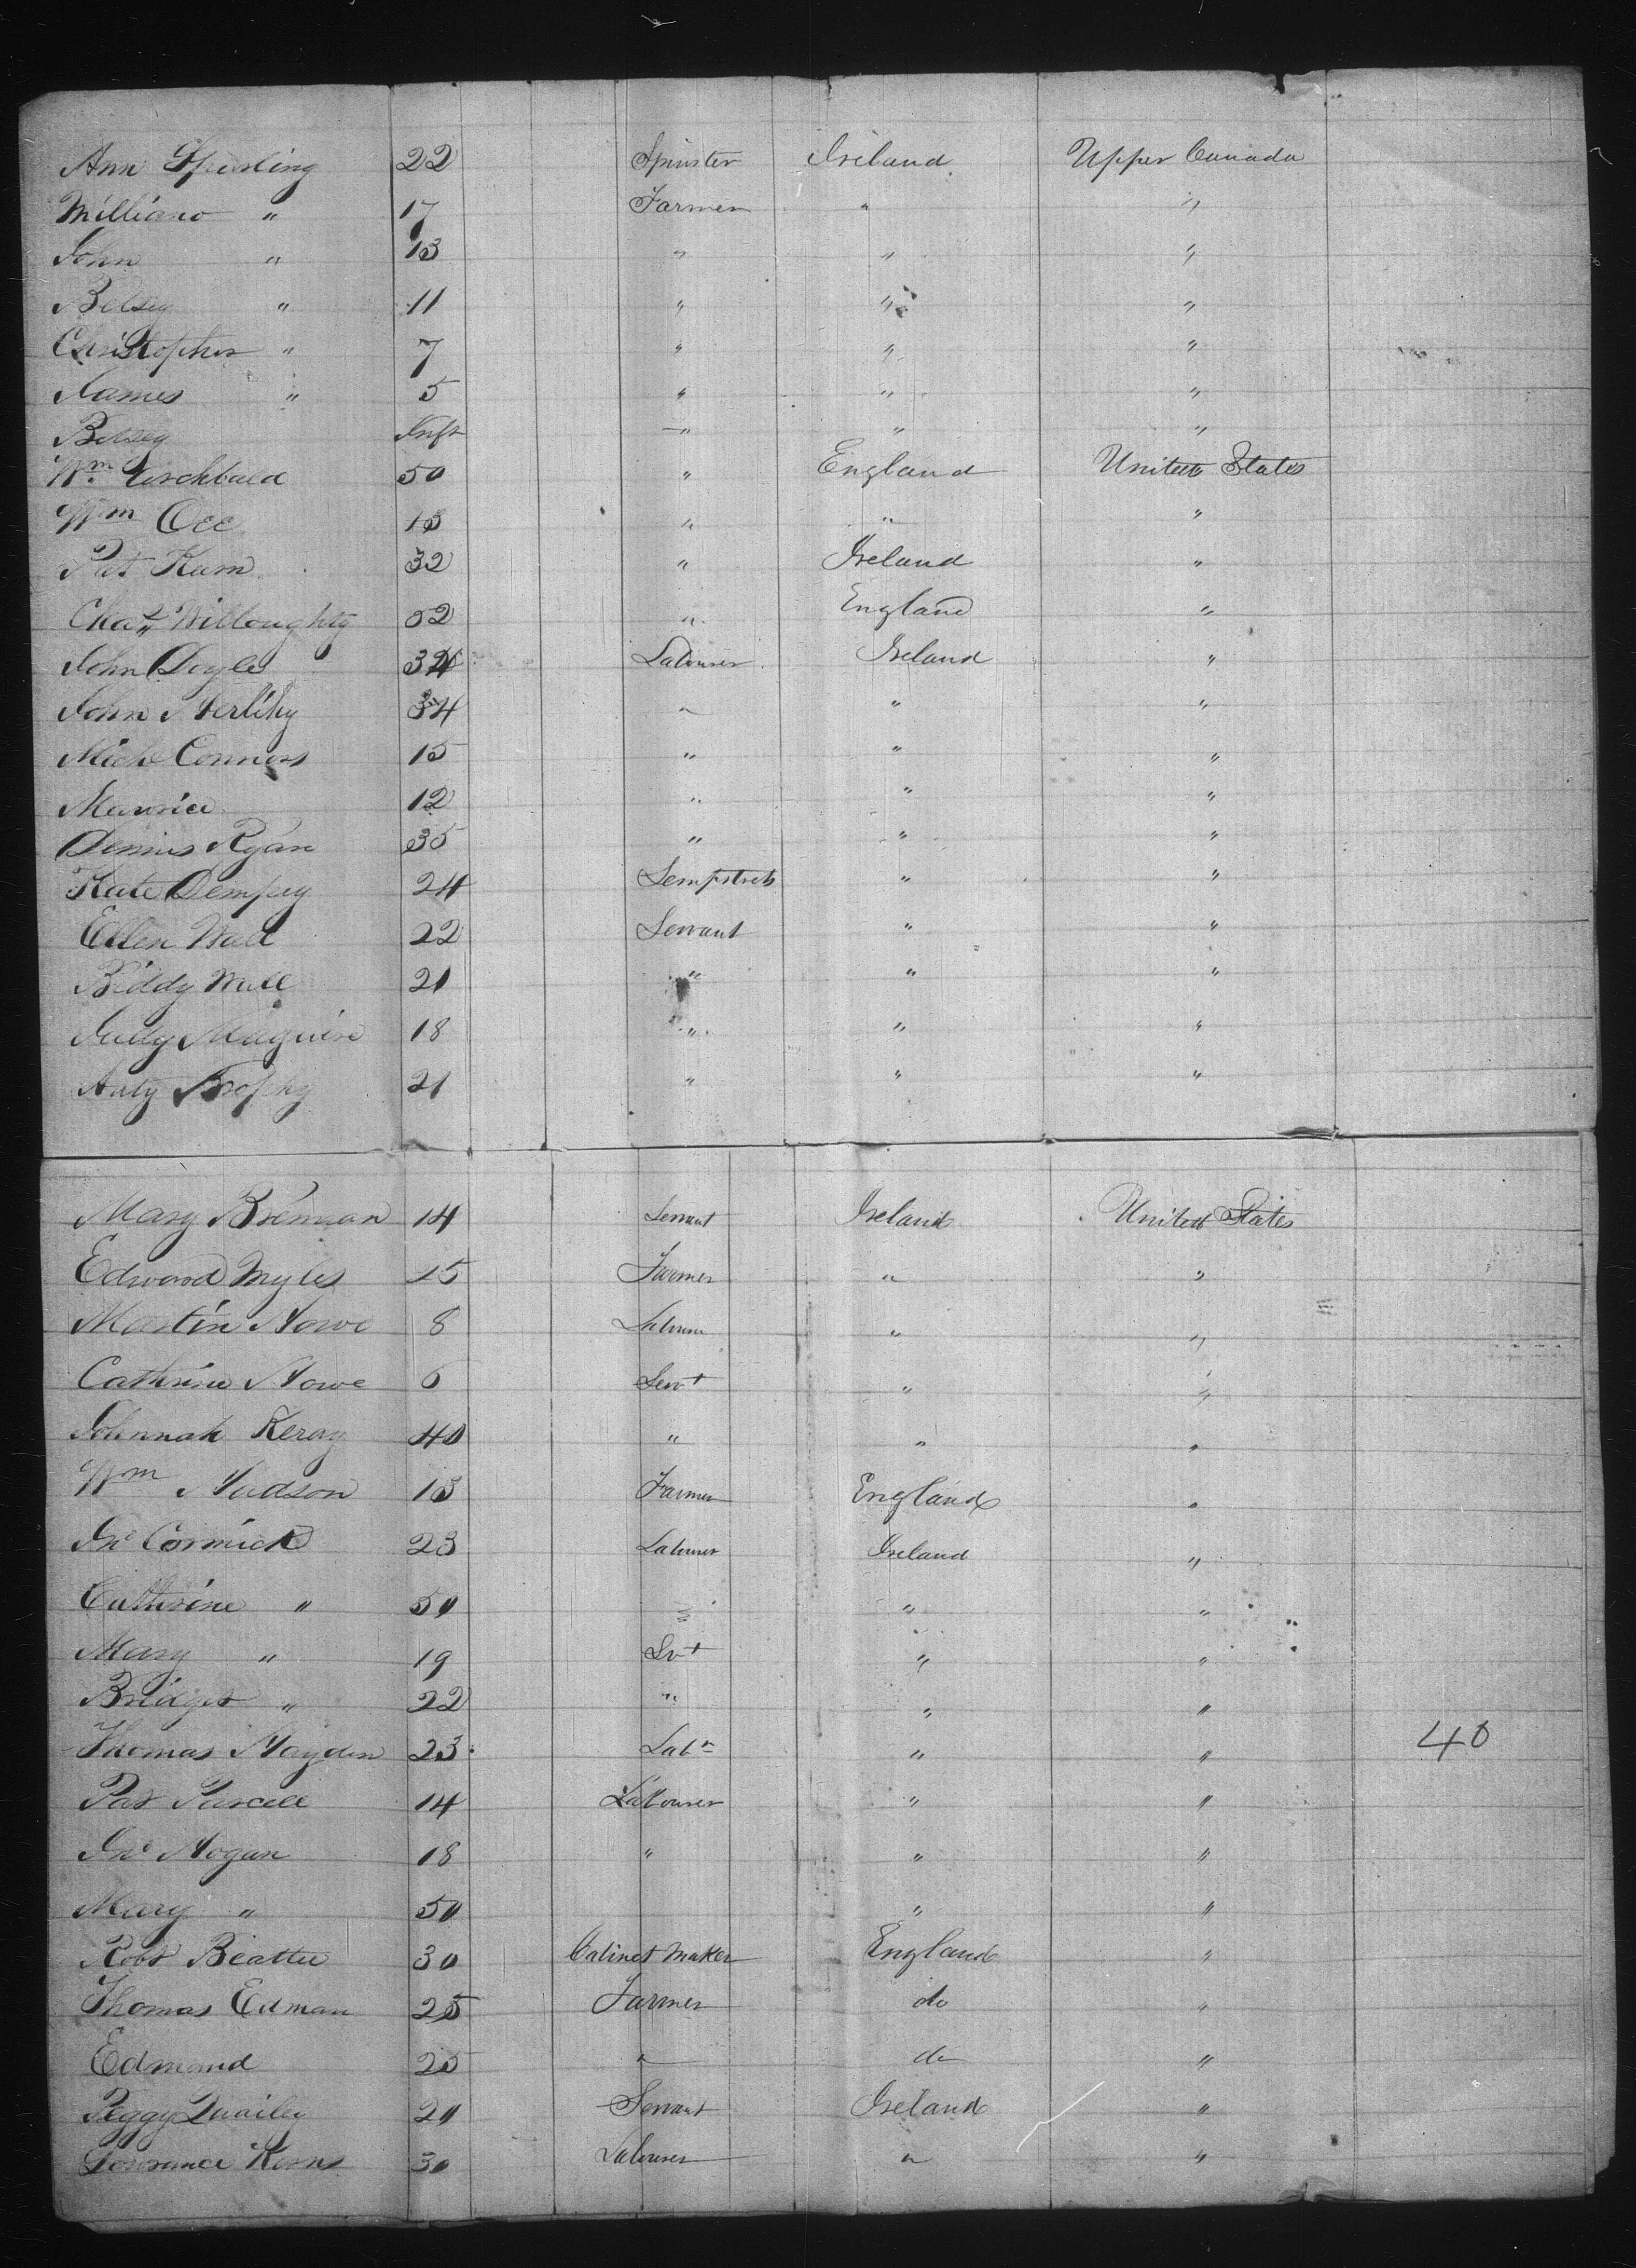 Ann Spurling 22 Spinster Ireland Upper Canada
William " 17 Farmer " "
John " 13 " " "
Betsey " 11 " " "
Christopher " 7 " " "
James " 5 " " "
Betsey Inft " " "
Wm Archbald 50 " England United States
Wm Occ 18 " " "
Pat Kurn 32 " Ireland "
Chas Willoughty 52 " England "
John Doyle 34 Labourer Ireland "
John Herlihy 34 " " "
Mich Connors 15 " " "
Maurice 12 " " "
Dennis Ryan 35 " " "
Kate Dempsey 24 Sempstress " "
Ellen Wall 22 Servant " "
Biddy Wall 21 " " "
Judy Maguire 18 " " "
Anty Brophy 21 " " "
Mary Brennan 14 Servant Ireland United States
Edward Myles 15 Farmer " "
Martin Howe 8 Labourer " "
Cathrine Howe 6 Servt " "
Johnnah Keray 40 " " "
Wm Hudson 13 Farmer England "
Jno Cormick 23 Labourer Ireland "
Cathrine " 50 " " "
Mary " 19 Svt " "
Bridget " 22 " " "
Thomas Hayden 23 Labr " " 40
Pat Purcell 14 Labourer " "
Jno Hogan 18 " " "
Mary " 50 " "
Robt Beattie 30 Cabinet Maker England "
Thomas Edman 25 Farmer do "
Edmond 25 " do "
Peggy Quailey 20 Servant Ireland "
Lowrance Kerns 30 Labourer " "